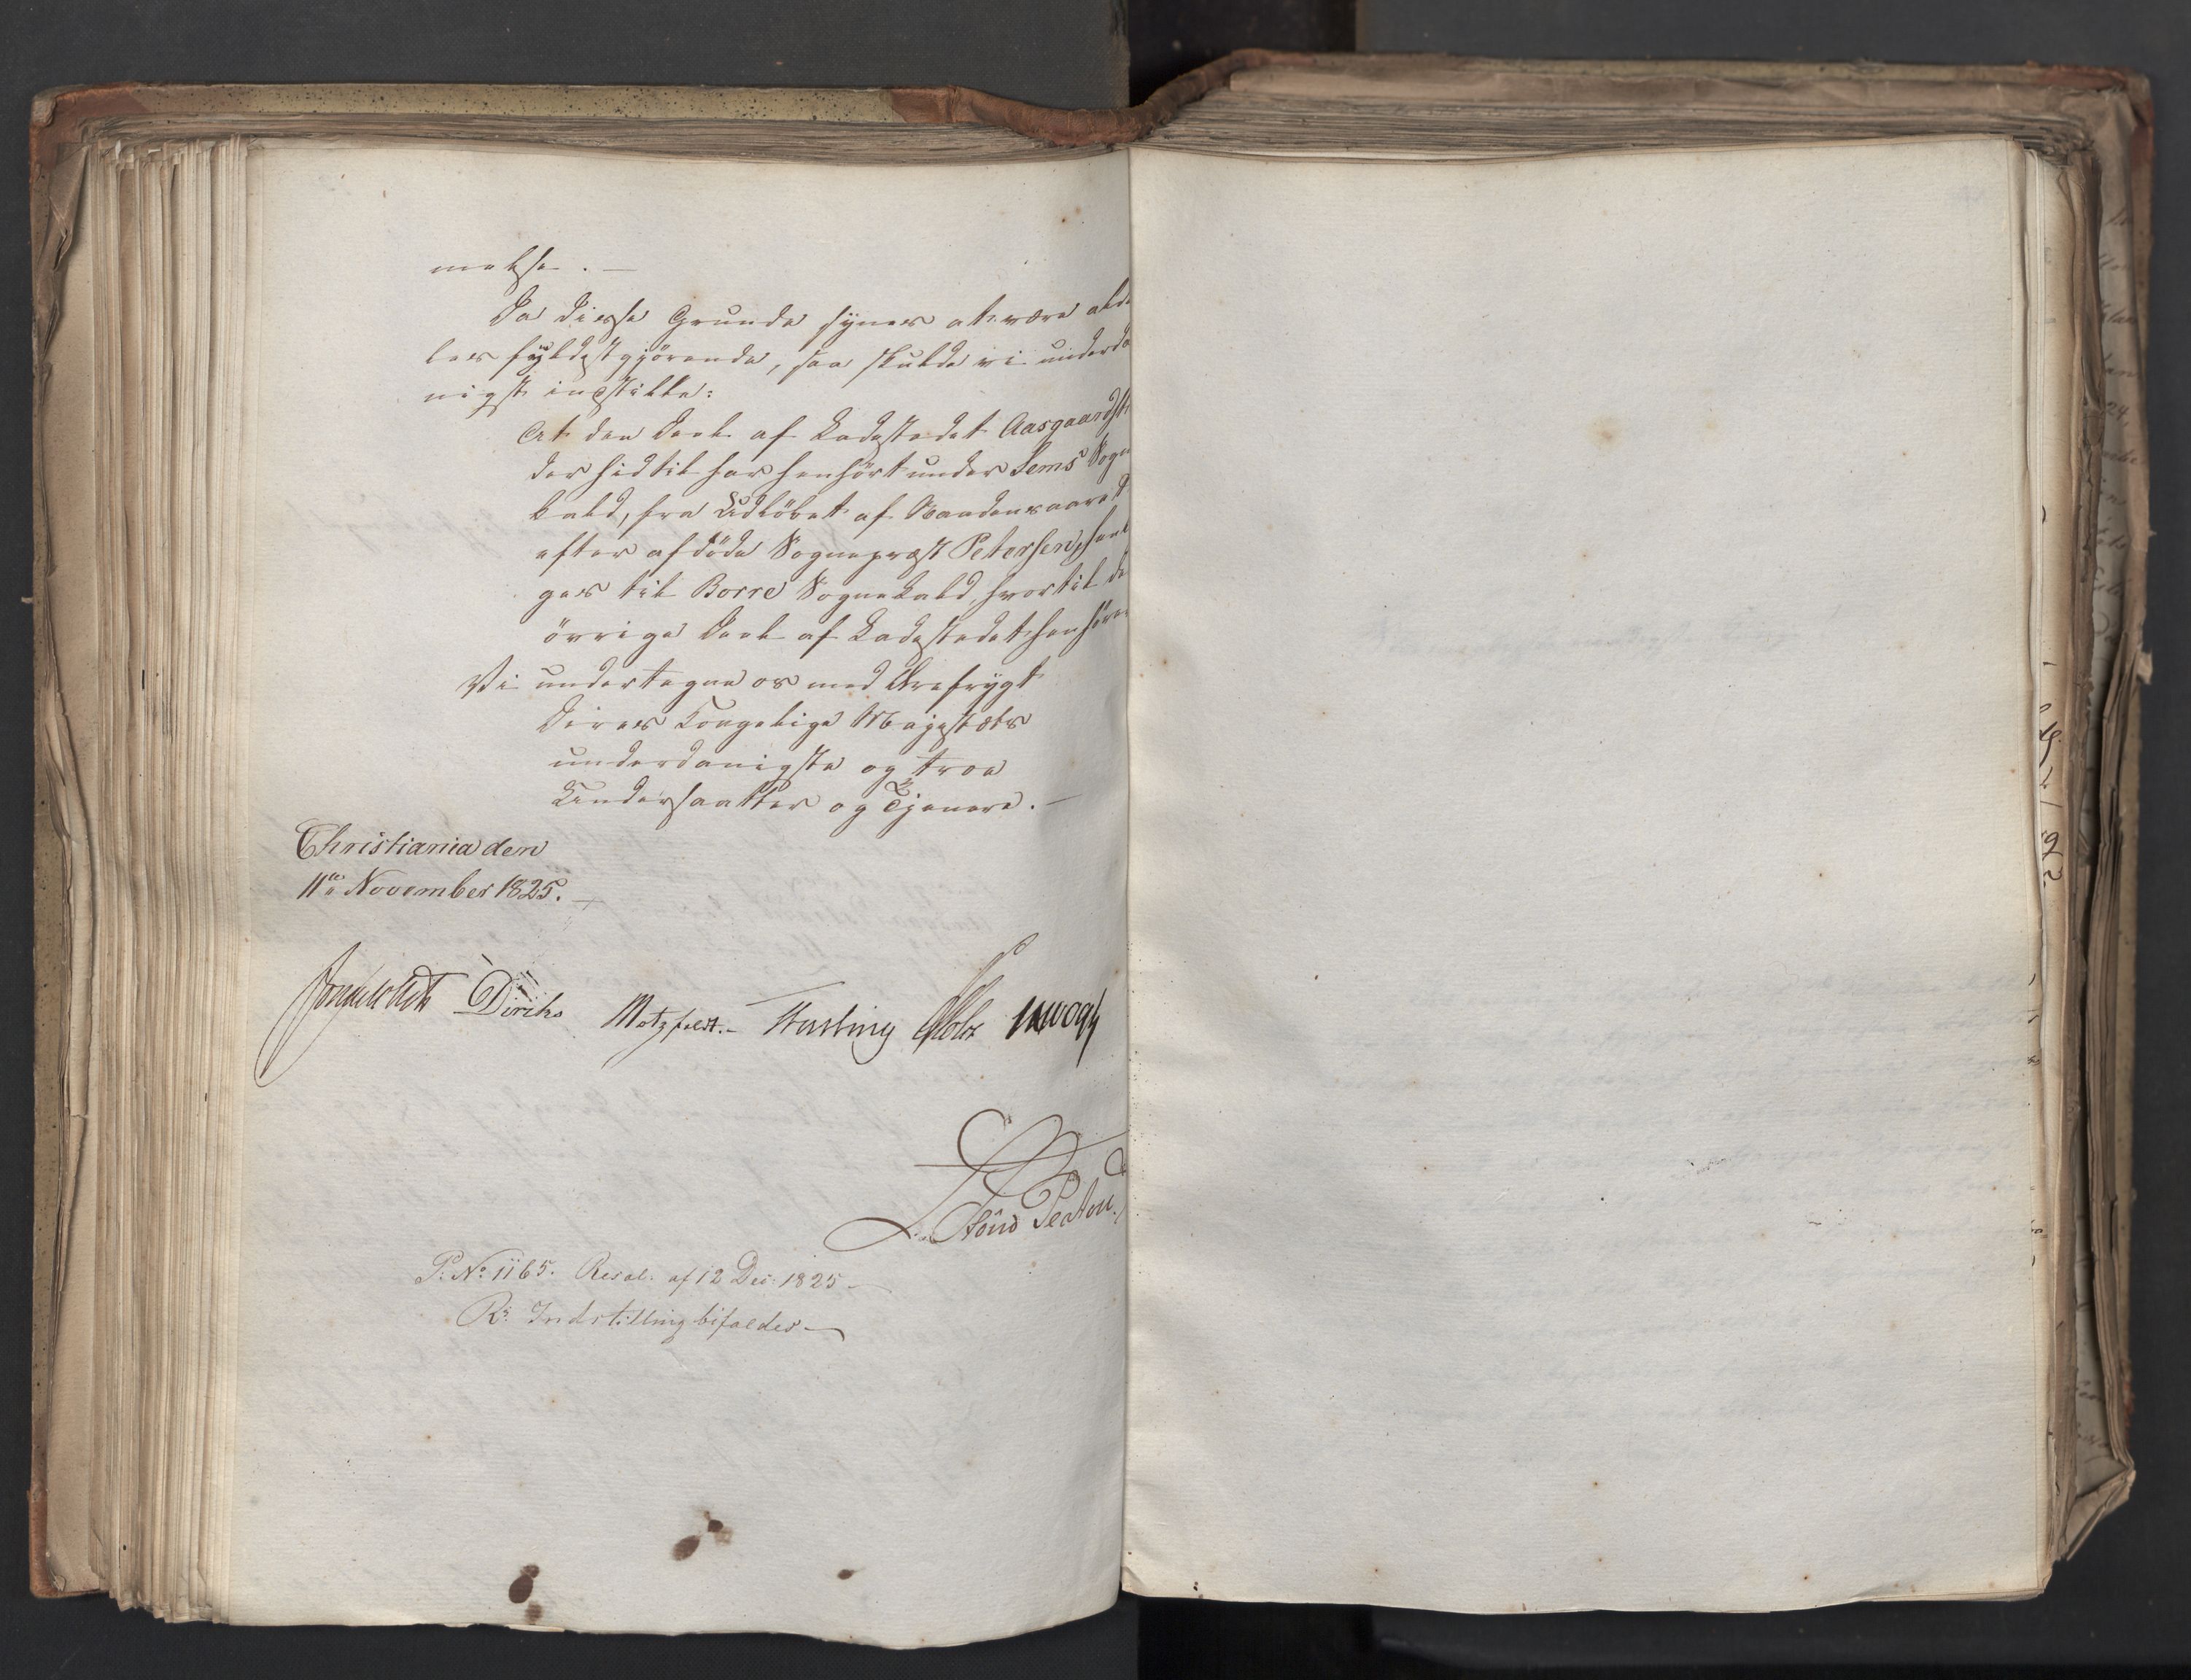 melse. —
Da disse Grunde synes at være alde
les fyldestgjørende, saa skulde vi underda
nigst indstille:
At den Deel af Ladestedet Aasgaardst
der hidtil har henhört under Sems Sogne
kald, fra Udløbet af Naadensaaret
efter afdöde Sognepræst Petersen, hen
ges til Borre Sognekald, hvortil de
övrige Deel af Ladestedet henhörer
Vi undertegne os med Ærefrygt
Deres Kongelige Majestæts
underdanigste og troe
Undersaatter og Tjenere. —
Christiania den
11te November 1825. —
Diriks Motzfeldt. Krogh
P: No 1165. Resol: af 12 Dec: 1825 —
Rs: Indstilling bifaldes —